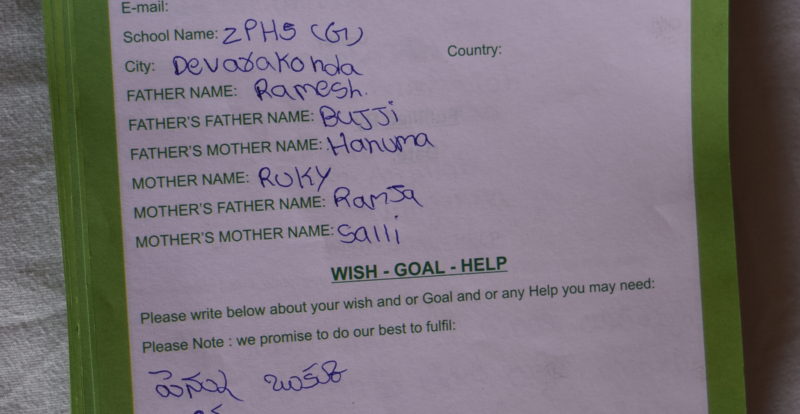 E-mail:
School Name: ZPHS (G)
City: Devarakonda Country:
FATHER NAME: Ramesh.
FATHER'S FATHER NAME: Bujji
FATHER'S MOTHER NAME: Hanuma
MOTHER NAME: RUKY
MOTHER'S FATHER NAME: Ramja
MOTHER'S MOTHER NAME: Salli
WISH - GOAL - HELP
Please write below about your wish and or Goal and or any Help you may need:
Please Note : we promise to do our best to fulfil: